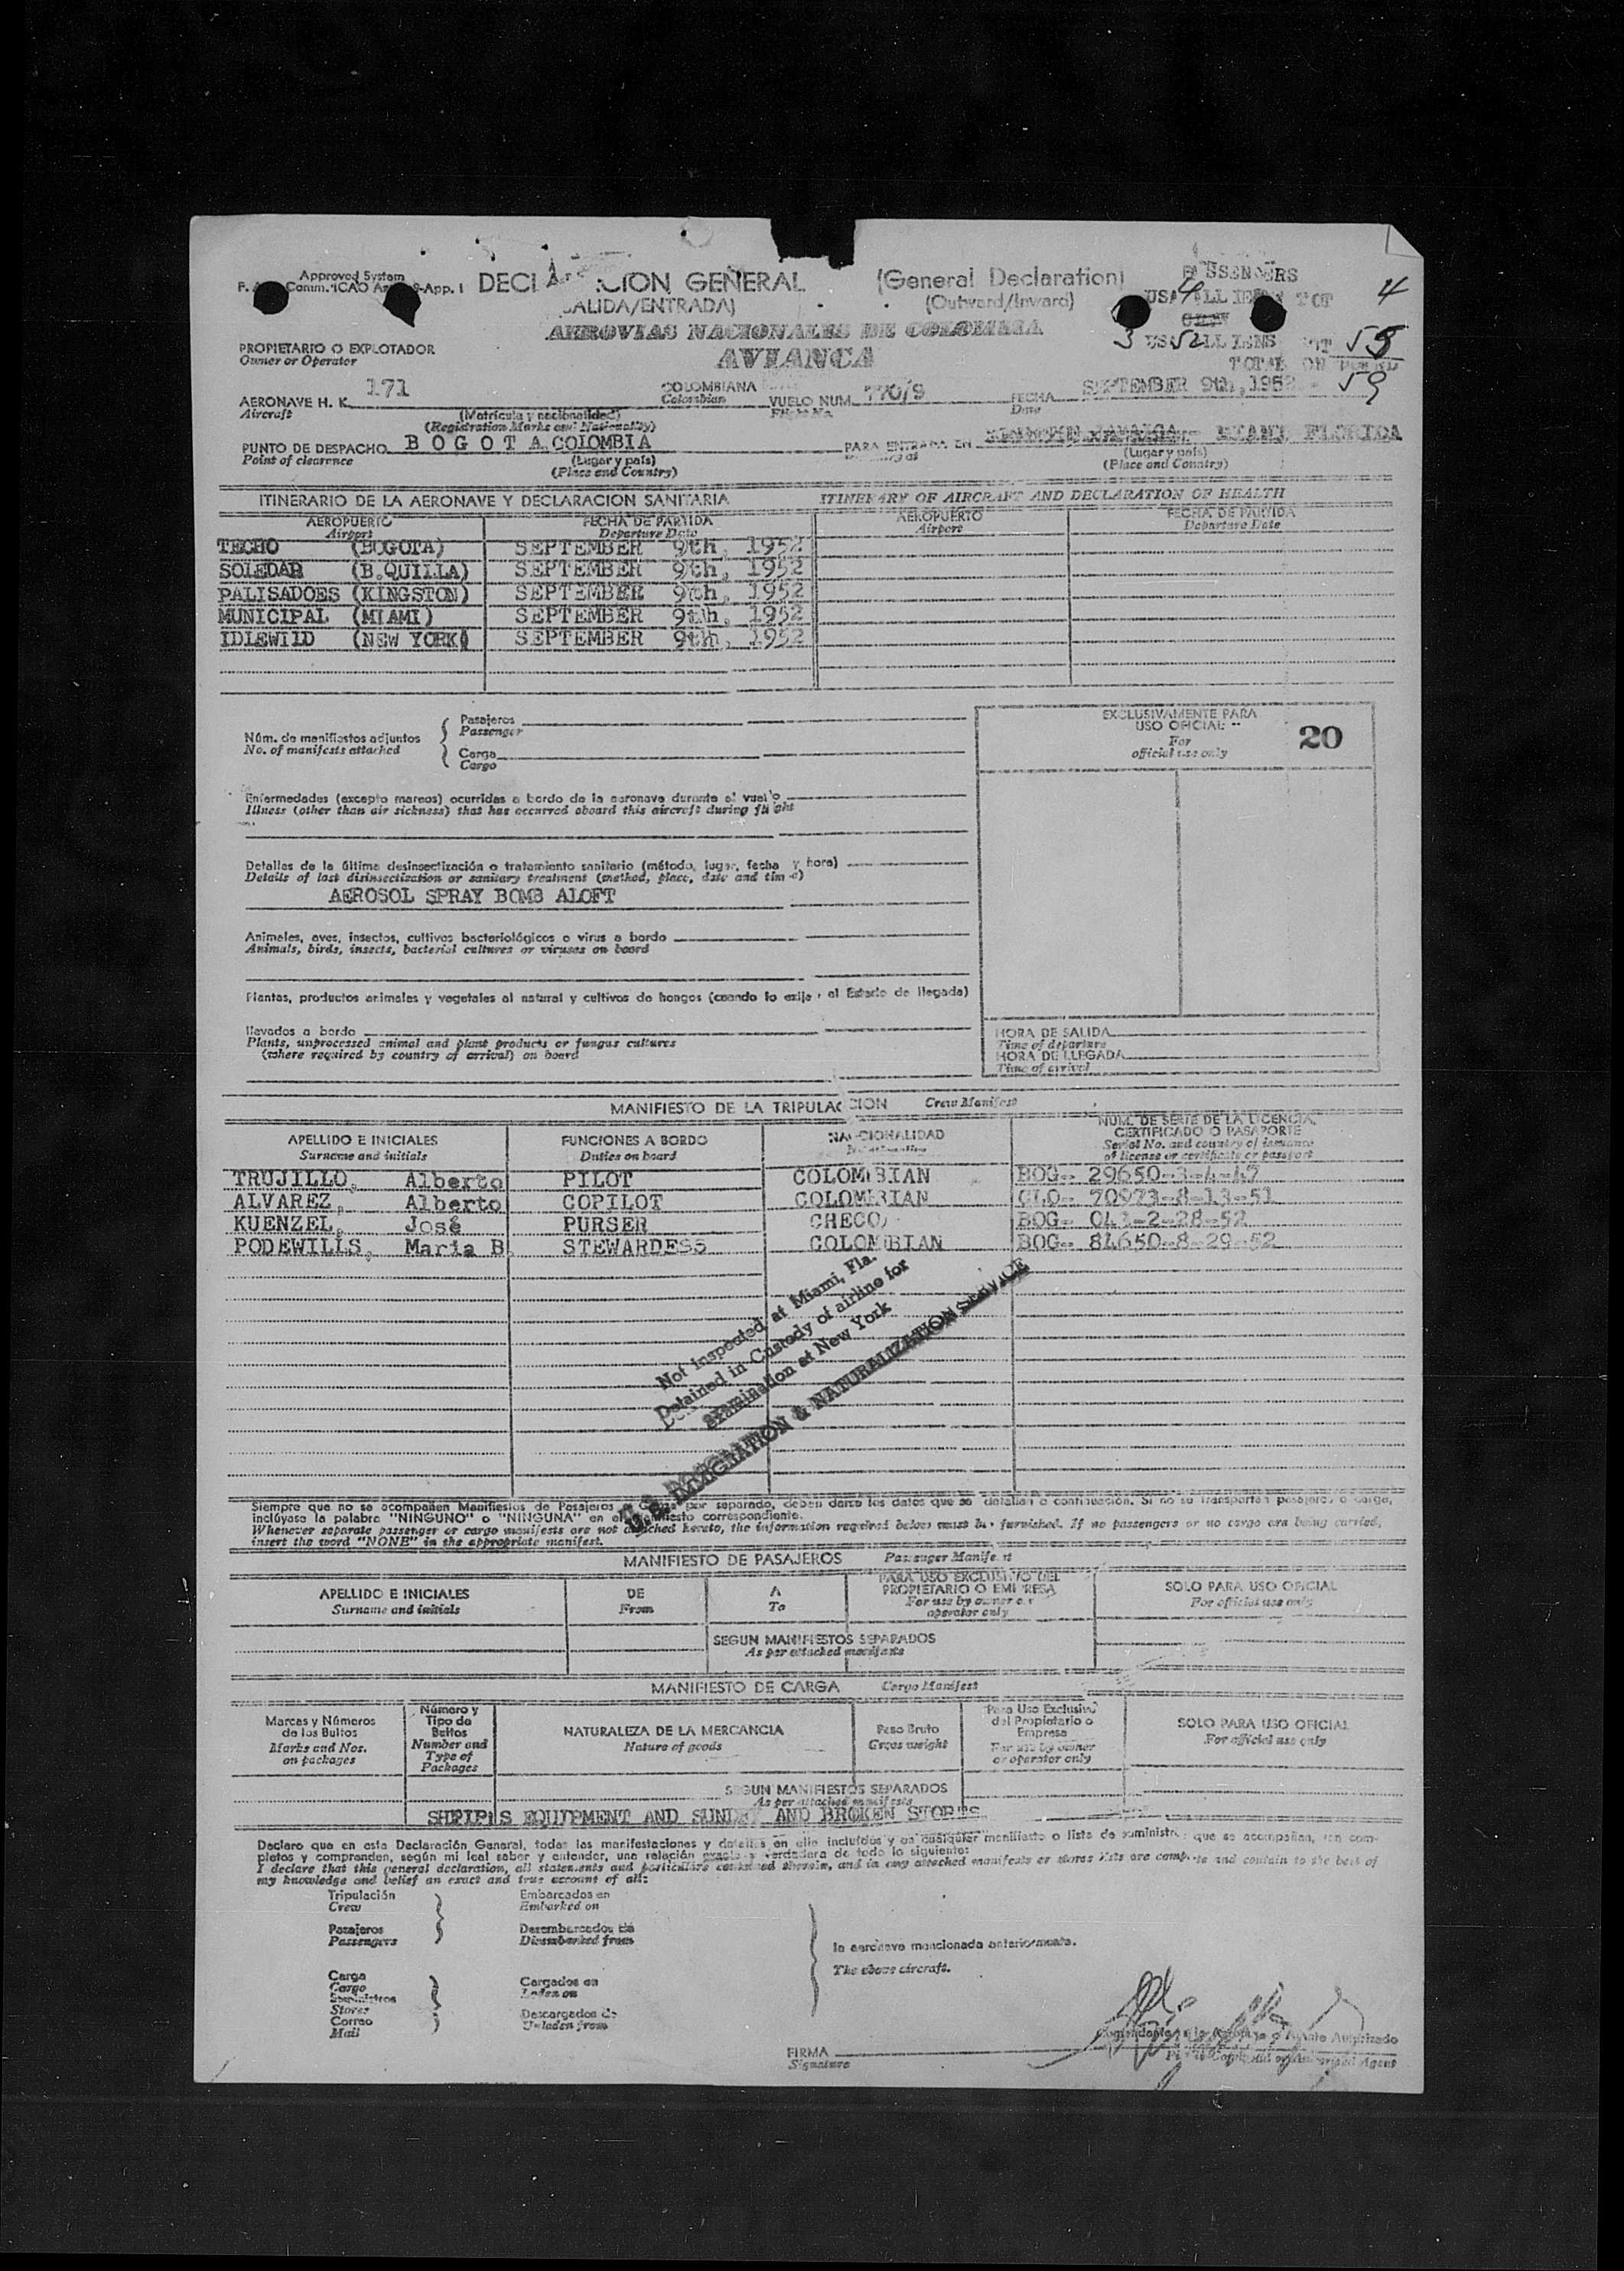 Approved System
DECLARACION GENERAL (General Declaration)
(SALIDA/ENTRADA) (Outward/Inward)
PASSENGERS
USA 4 ALLIENS TOT 4
CREW
3 USA 52 ALLIENS TOT 55
TOTAL ON BOARD 59
AEROVIAS NACIONALES DE COLOMBIA
AVIANCA
PROPIETARIO O EXPLOTADOR
Owner or Operator
AERONAVE H. K. 171 COLOMBIANA VUELO NUM. 770/9 FECHA SEPTEMBER 9th, 1952
Aircraft (Matrícula y nacionalidad) Colombian Flight No. Date
(Registration Marks and Nationality)
PUNTO DE DESPACHO BOGOTA COLOMBIA PARA ENTRADA EN MIAMI FLORIDA
Point of clearence (Lugar y país) (Lugar y país)
(Place and Country) (Place and Country)
ITINERARIO DE LA AERONAVE Y DECLARACION SANITARIA ITINERARY OF AIRCRAFT AND DECLARATION OF HEALTH
AEROPUERTO FECHA DE PARTIDA AEROPUERTO FECHA DE PARTIDA
Airport Departure Date Airport Departure Date
TECHO (BOGOTA) SEPTEMBER 9th, 1952
SOLEDAD (B.QUILLA) SEPTEMBER 9th, 1952
PALISADOES (KINGSTON) SEPTEMBER 9th, 1952
MUNICIPAL (MIAMI) SEPTEMBER 9th, 1952
IDLEWILD (NEW YORK) SEPTEMBER 9th, 1952
Núm. de manifiestos adjuntos
No. of manifests attached
Pasajeros
Passenger
Carga
Cargo
EXCLUSIVAMENTE PARA
USO OFICIAL
For
official use only
20
Enfermedades (excepto mareos) ocurridas a bordo de la aeronave durante el vuelo
Illness (other than air sickness) that has occurred aboard this aircraft during flight
Detalles de la última desinsectización o tratamiento sanitario (método, lugar, fecha y hora)
Details of last disinsectization or sanitary treatment (method, place, date and time)
AEROSOL SPRAY BOMB ALOFT
Animales, aves, insectos, cultivos bacteriológicos o virus a bordo
Animals, birds, insects, bacterial cultures or viruses on board
Plantas, productos animales y vegetales al natural y cultivos de hongos (cuando lo exija el Estado de llegada)
llevados a bordo
Plants, unprocessed animal and plant products or fungus cultures
(where required by country of arrival) on board
HORA DE SALIDA
Time of departure
HORA DE LLEGADA
Time of arrival
MANIFIESTO DE LA TRIPULACION Crew Manifest
APELLIDO E INICIALES FUNCIONES A BORDO NACIONALIDAD NUM. DE SERIE DE LA LICENCIA, CERTIFICADO O PASAPORTE
Surname and initials Duties on board Serial No. and country of issuance of license or certificate or passport
TRUJILLO, Alberto PILOT COLOMBIAN BOG- 29650-3-4-47
ALVAREZ, Alberto COPILOT COLOMBIAN CLO- 70973-8-13-51
KUENZEL, José PURSER CHECO BOG- 043-2-28-52
PODEWILLS, Maria B. STEWARDESS COLOMBIAN BOG- 84650-8-29-52
Not inspected at Miami, Fla.
Detained in Custody of airline for
examination at New York
U.S. IMMIGRATION & NATURALIZATION SERVICE
Siempre que no se acompañen Manifiestos de Pasajeros o Carga por separado, deben darse los datos que se detallan a continuación. Si no se transportan pasajeros o carga,
inclúyase la palabra "NINGUNO" o "NINGUNA" en el manifiesto correspondiente.
Whenever separate passenger or cargo manifests are not attached hereto, the information required below must be furnished. If no passengers or no cargo are being carried,
insert the word "NONE" in the appropriate manifest.
MANIFIESTO DE PASAJEROS Passenger Manifest
APELLIDO E INICIALES DE A PARA USO EXCLUSIVO DEL PROPIETARIO O EMPRESA SOLO PARA USO OFICIAL
Surname and initials From To For use by owner or operator only For official use only
SEGUN MANIFIESTOS SEPARADOS
As per attached manifests
MANIFIESTO DE CARGA Cargo Manifest
Marcas y Números de los Bultos Número y Tipo de Bultos NATURALEZA DE LA MERCANCIA Peso Bruto Para Uso Exclusivo del Propietario o Empresa SOLO PARA USO OFICIAL
Marks and Nos. on packages Number and Type of Packages Nature of goods Gross weight For use by owner or operator only For official use only
SEGUN MANIFIESTOS SEPARADOS
As per attached manifests
SHPIPS EQUIPMENT AND SUNDRY AND BROKEN STORES
Declaro que en esta Declaración General, todas las manifestaciones y detalles en ella incluídos y en cualquier manifiesto o lista de suministros que se acompañan, son com-
pletos y comprenden, según mi leal saber y entender, una relación exacta y verdadera de todo lo siguiente:
I declare that this general declaration, all statements and particulars contained therein, and in any attached manifests or stores lists are complete and contain to the best of
my knowledge and belief an exact and true account of all:
Tripulación Embarcados en
Crew Embarked on
Pasajeros Desembarcados de
Passengers Disembarked from
la aeronave mencionada anteriormente.
The above aircraft.
Carga Cargados en
Cargo Laden on
Suministros
Stores
Correo Descargados de
Mail Unladen from
FIRMA
Signature